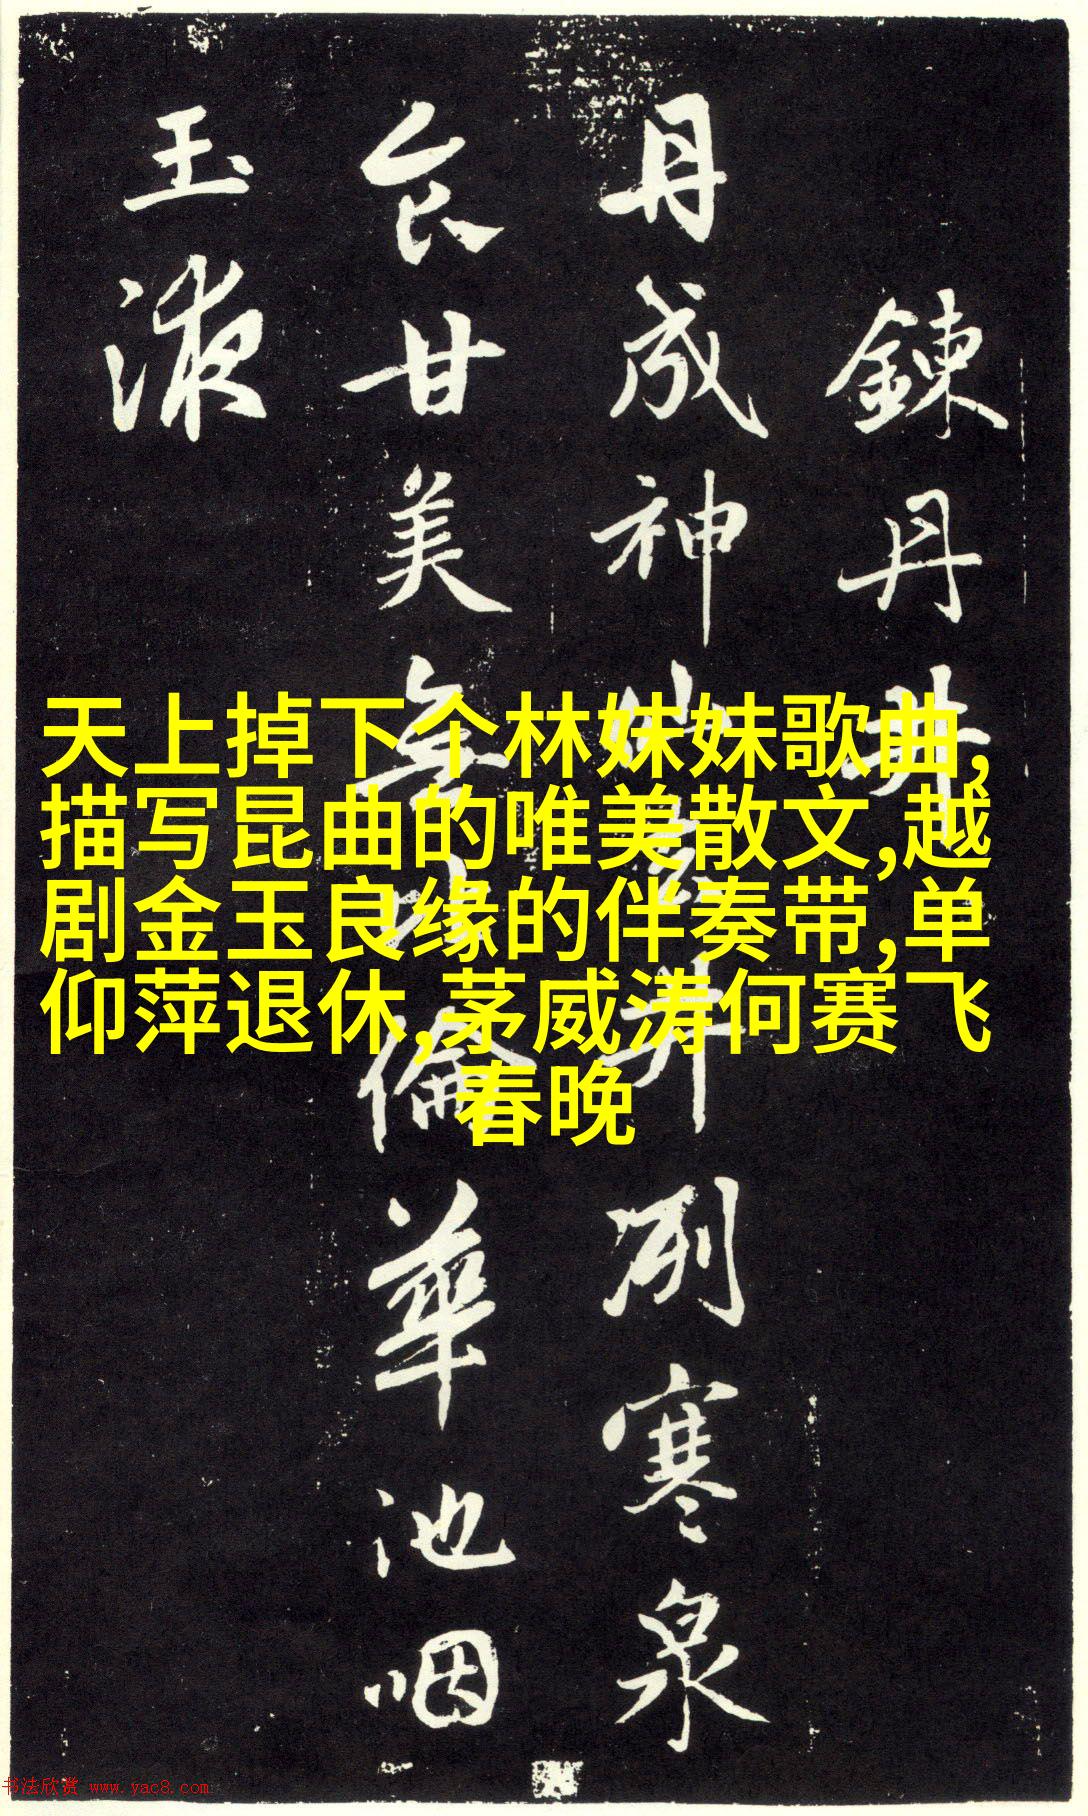 鍊丹井
丹成神仙去井冽寒泉
食甘美無比倫華池咽
玉液
天上掉下个林妹妹歌曲,
描写昆曲的唯美散文,越
剧金玉良缘的伴奏带,单
仰萍退休,茅威涛何赛飞
春晚
书法欣赏 www.yac8.com